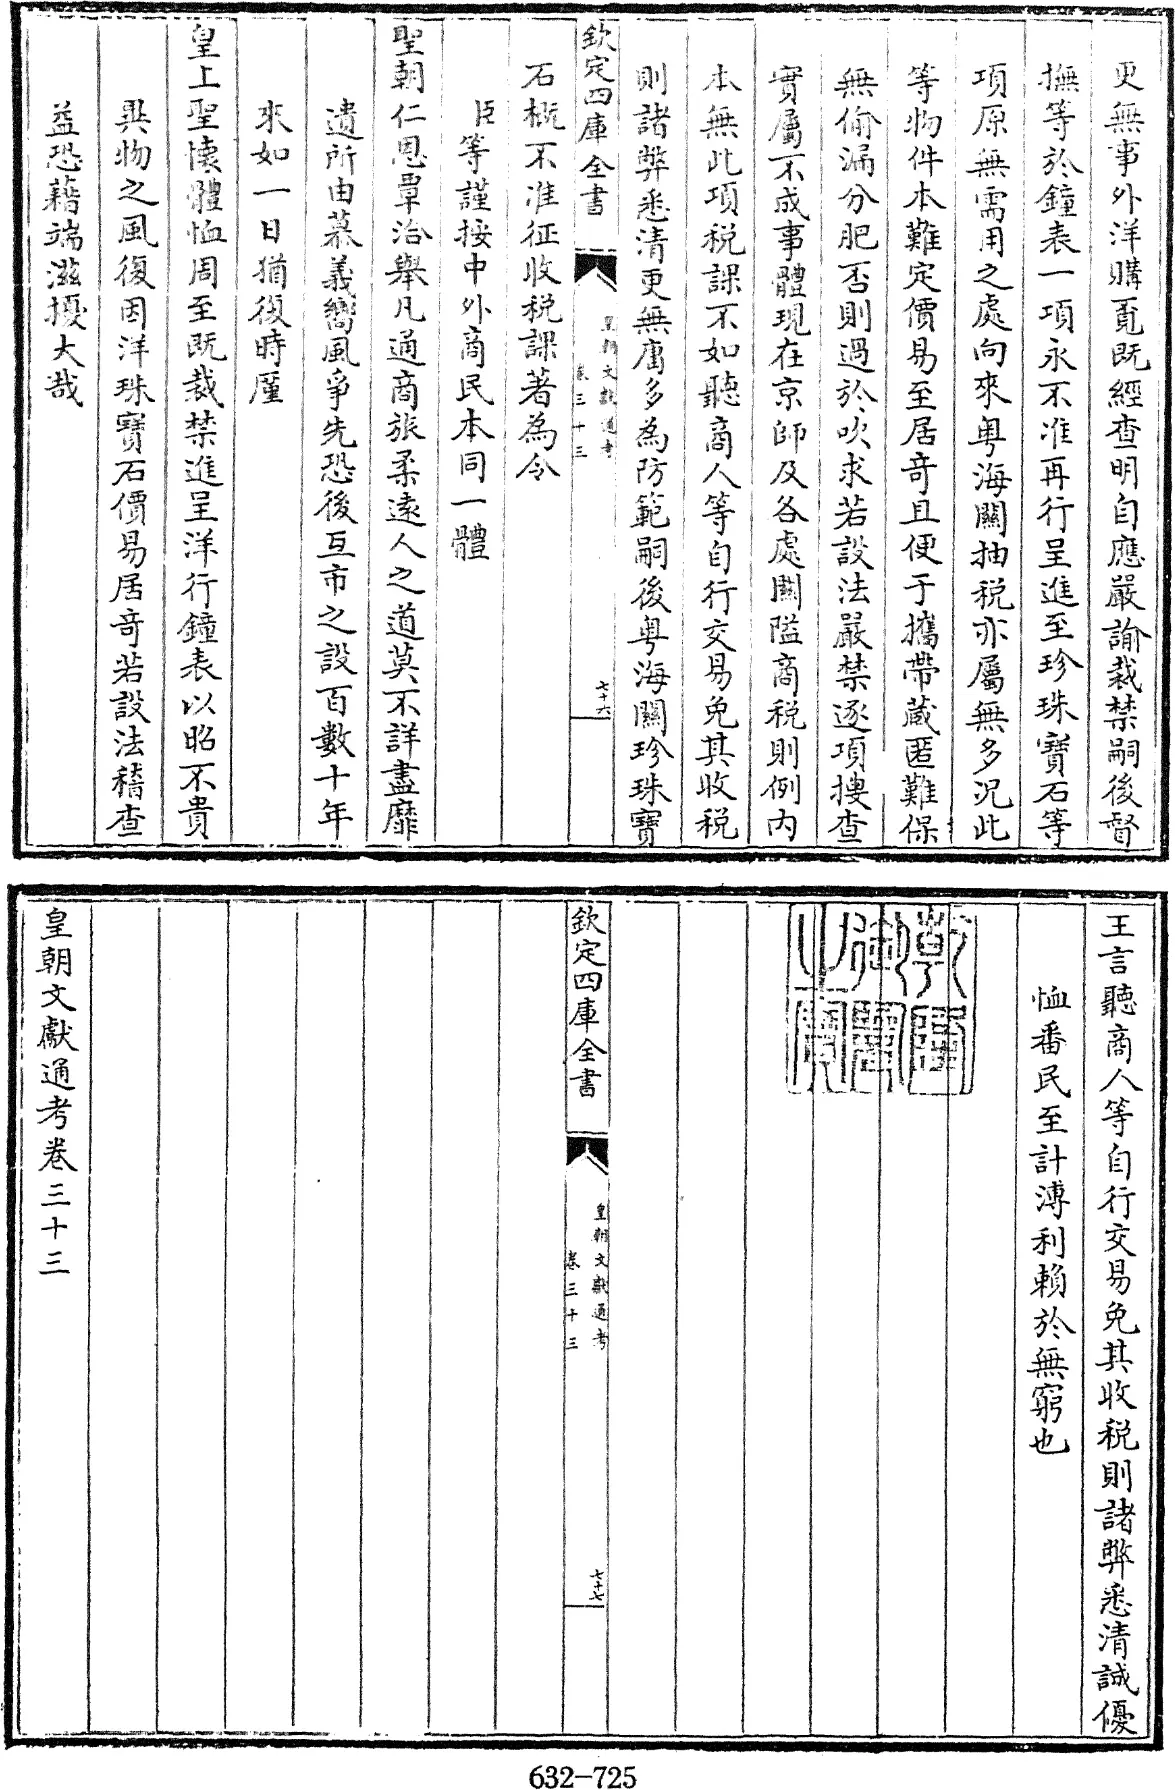 更無事外洋購覓既經查明自應嚴諭裁禁嗣後督
撫等於鐘表一項永不准再行呈進至珍珠寶石等
項原無需用之處向來粵海關抽税亦屬無多況此
等物件本難定價易至居奇且便于攜帶蔵匿難保
無偷漏分肥否則過於吹求若設法嚴禁逐項摟查
實屬不成事體現在京師及各處關隘商税則例内
本無此項税課不如聽商人等自行交易免其收税
則諸弊悉清更無庸多為防範嗣後粵海關珍珠寶
欽定四庫全書
皇朝文獻通考
卷三十三
七十六
石概不准征收税課著為令
臣等謹按中外商民本同一體
聖朝仁恩覃洽舉凡通商旅柔逺人之道莫不詳盡靡
遺所由慕義嚮風爭先恐後互市之設百數十年
來如一日猶復時厪
皇上聖懐體恤周至既裁禁進呈洋行鐘表以昭不貴
異物之風復因洋珠寶石價易居奇若設法稽查
益恐藉端滋擾大哉
王言聽商人等自行交易免其收税則諸弊悉清誠優
恤番民至計溥利賴於無窮也
乾隆御覽之寶
欽定四庫全書
皇朝文獻通考
卷三十三
七十七
皇朝文獻通考卷三十三
632-725